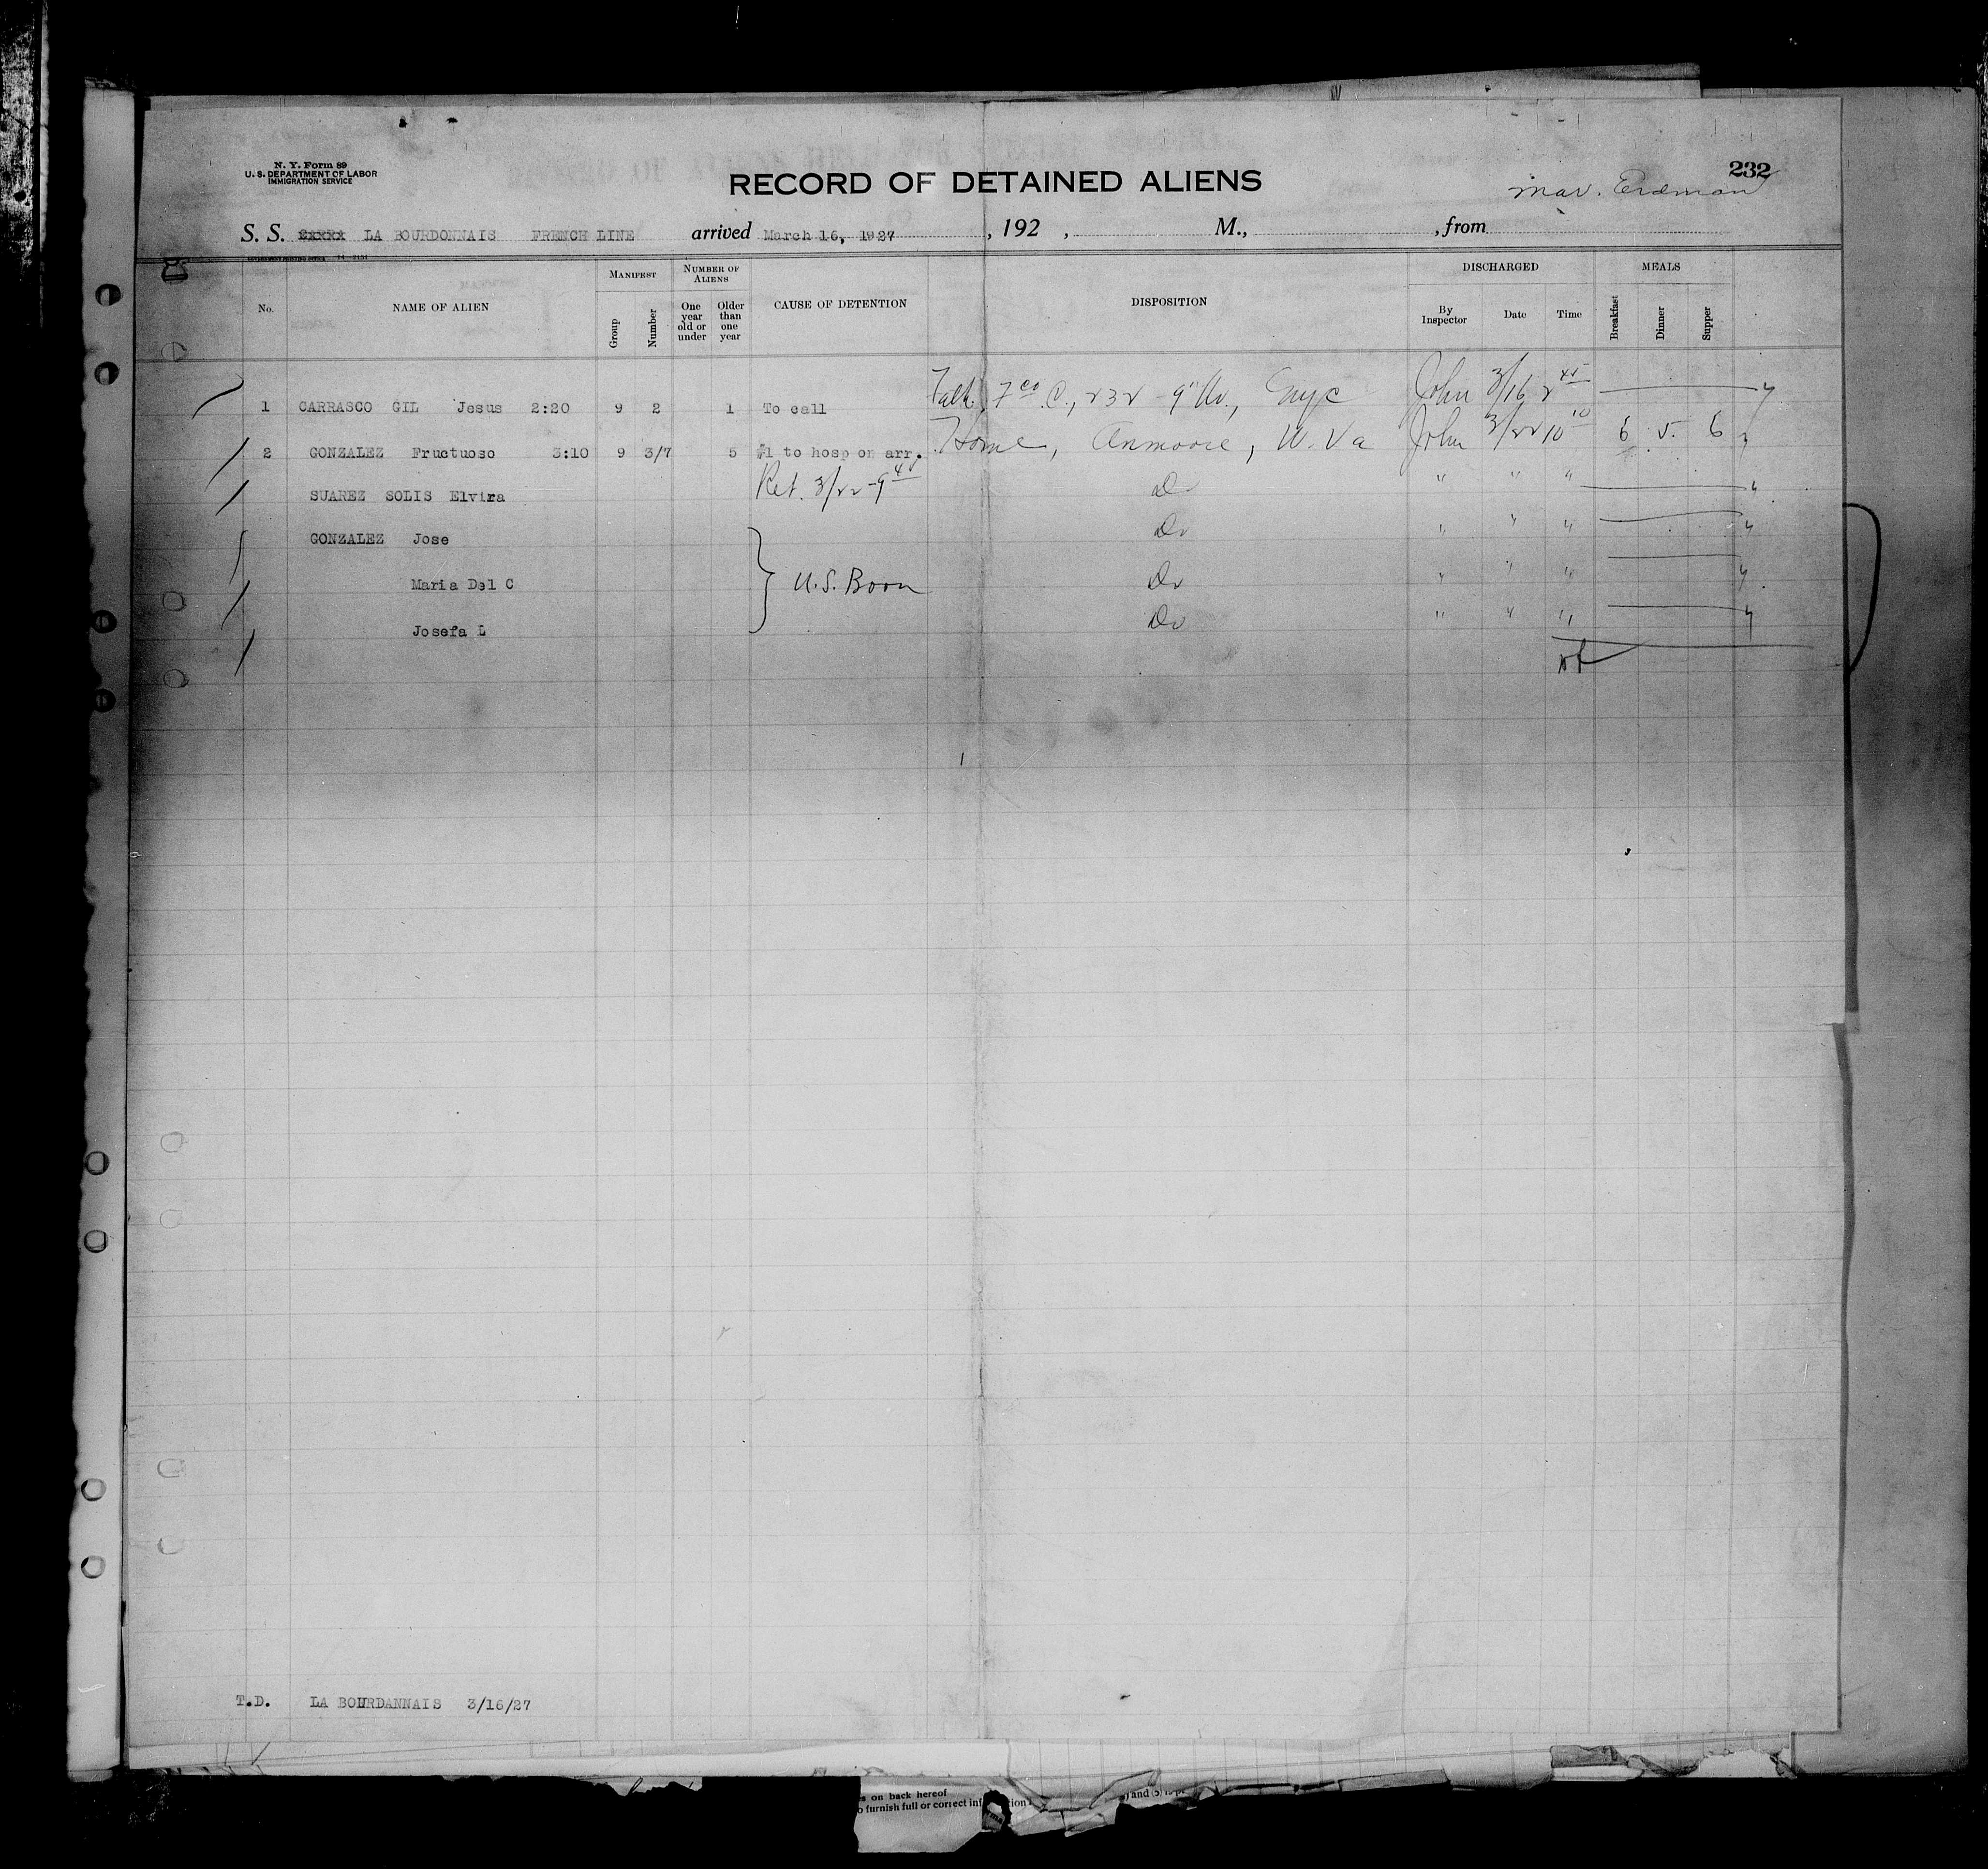 N. Y. Form 89
U. S. DEPARTMENT OF LABOR
IMMIGRATION SERVICE
232
RECORD OF DETAINED ALIENS
Mar. Erdman
S. S. LA BOURDONNAIS FRENCH LINE arrived March 16, 1927, 192 , M., , from
MANIFEST NUMBER OF ALIENS DISCHARGED MEALS
No. NAME OF ALIEN Group Number One year old or under Older than one year CAUSE OF DETENTION DISPOSITION By Inspector Date Time Breakfast Dinner Supper
1 CARRASCO GIL Jesus 2:20 9 2 1 To call 232 - 9" Av., NYC John 3/16 2 45
2 GONZALEZ Fructuoso 3:10 9 3/7 5 #1 to hosp on arr. Home, Anmoore, W. Va John 3/22 10 10 6 5 6
SUAREZ SOLIS Elvira Ret. 3/22 - 9 40 Do " " "
GONZALEZ Jose Do " " "
Maria Del C U.S. Born Do " " "
Josefa L Do " " "
T.D. LA BOURDANNAIS 3/16/27
s on back hereof
o furnish full or correct inf
tion
) and (5) is p